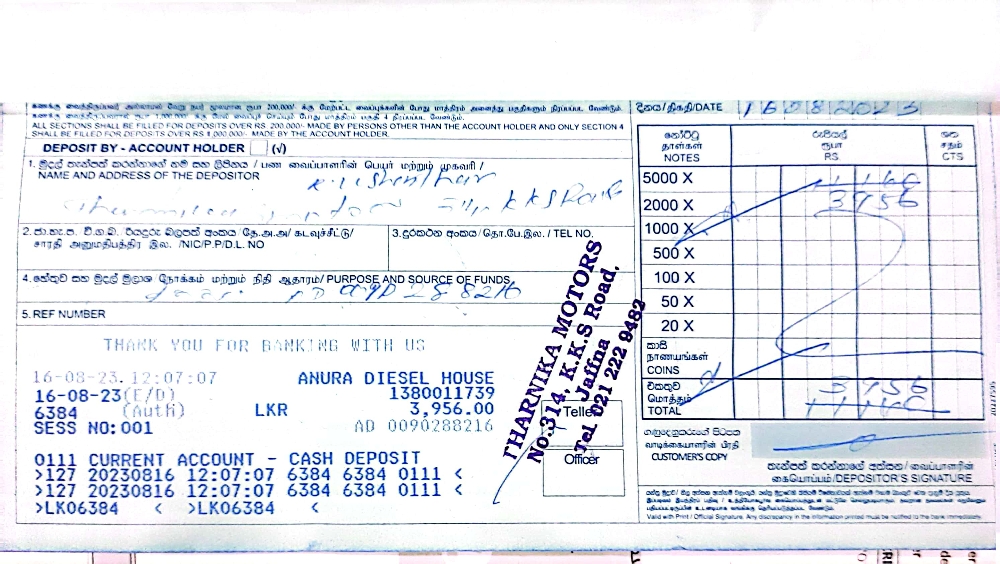 කණක්කු வைத்திருப்பவர் அல்லாமல் வேறு நபர் மூலமான ரூபா 200,000/- க்கு மேற்பட்ட வைப்புக்களின் போது மாத்திரம் அனைத்து பகுதிகளும் நிரப்பப்பட வேண்டும்.
ALL SECTIONS SHALL BE FILLED FOR DEPOSITS OVER RS. 200,000/- MADE BY PERSONS OTHER THAN THE ACCOUNT HOLDER AND ONLY SECTION 4
SHALL BE FILLED FOR DEPOSITS OVER RS 1,000,000/- MADE BY THE ACCOUNT HOLDER.
DEPOSIT BY - ACCOUNT HOLDER (√)
1. මුදල් තැන්පත් කරන්නාගේ නම සහ ලිපිනය / பண வைப்பாளரின் பெயர் மற்றும் முகவரி /
NAME AND ADDRESS OF THE DEPOSITOR
2. ජා.හැ.ප. වි.ග.බ. රියදුරු බලපත් අංකය/தே.அ.அ/ கடவுச்சீட்டு/
சாரதி அனுமதிபத்திர இல. /NIC/P.P/D.L. NO
3. දුරකථන අංකය/தொ.பே.இல. / TEL NO.
4. හේතුව සහ මුදල් මුලාශ්‍ර நோக்கம் மற்றும் நிதி ஆதாரம்/ PURPOSE AND SOURCE OF FUNDS
5. REF NUMBER
THANK YOU FOR BANKING WITH US
16-08-23. 12:07:07 ANURA DIESEL HOUSE
16-08-23(E/D) 1380011739
6384 (Auth) LKR 3,956.00
SESS NO:001 AD 0090288216
0111 CURRENT ACCOUNT - CASH DEPOSIT
>127 20230816 12:07:07 6384 6384 0111 <
>127 20230816 12:07:07 6384 6384 0111 <
>LK06384 < >LK06384 <
THARNIKA MOTORS
No.314, K.K.S Road,
Jaffna
Tel 021 222 9482
Teller
Officer
දිනය/திகதி/DATE 16082023
නෝට්ටු
தாள்கள்
NOTES
රුපියල්
ரூபா
RS.
ශත
சதம்
CTS
5000 X
2000 X 3956
1000 X
500 X
100 X
50 X
20 X
කාසි
நாணயங்கள்
COINS
එකතුව
மொத்தம்
TOTAL
3956
ගනුදෙනුකරුගේ පිටපත
வாடிக்கையாளரின் பிரதி
CUSTOMER'S COPY
තැන්පත් කරන්නාගේ අත්සන / வைப்பாளரின்
கையொப்பம்/DEPOSITOR'S SIGNATURE
Valid with Print / Official Signature. Any discrepancy in the information printed must be notified to the bank immediately.